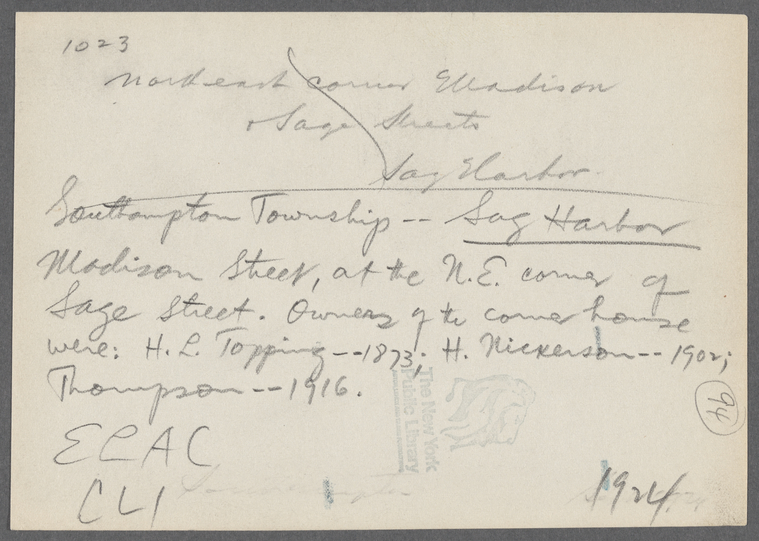 1023
North east corner Madison
+ Sage Streets
Sag Harbor
Southampton Township -- Sag Harbor
Madison Street, at the N.E. corner of
Sage Street. Owners of the corner house
were: H. L. Topping -- 1873; H. Nickerson -- 1902;
Thompson -- 1916.
94
The New York
Public Library
ECAC
CLI
1924